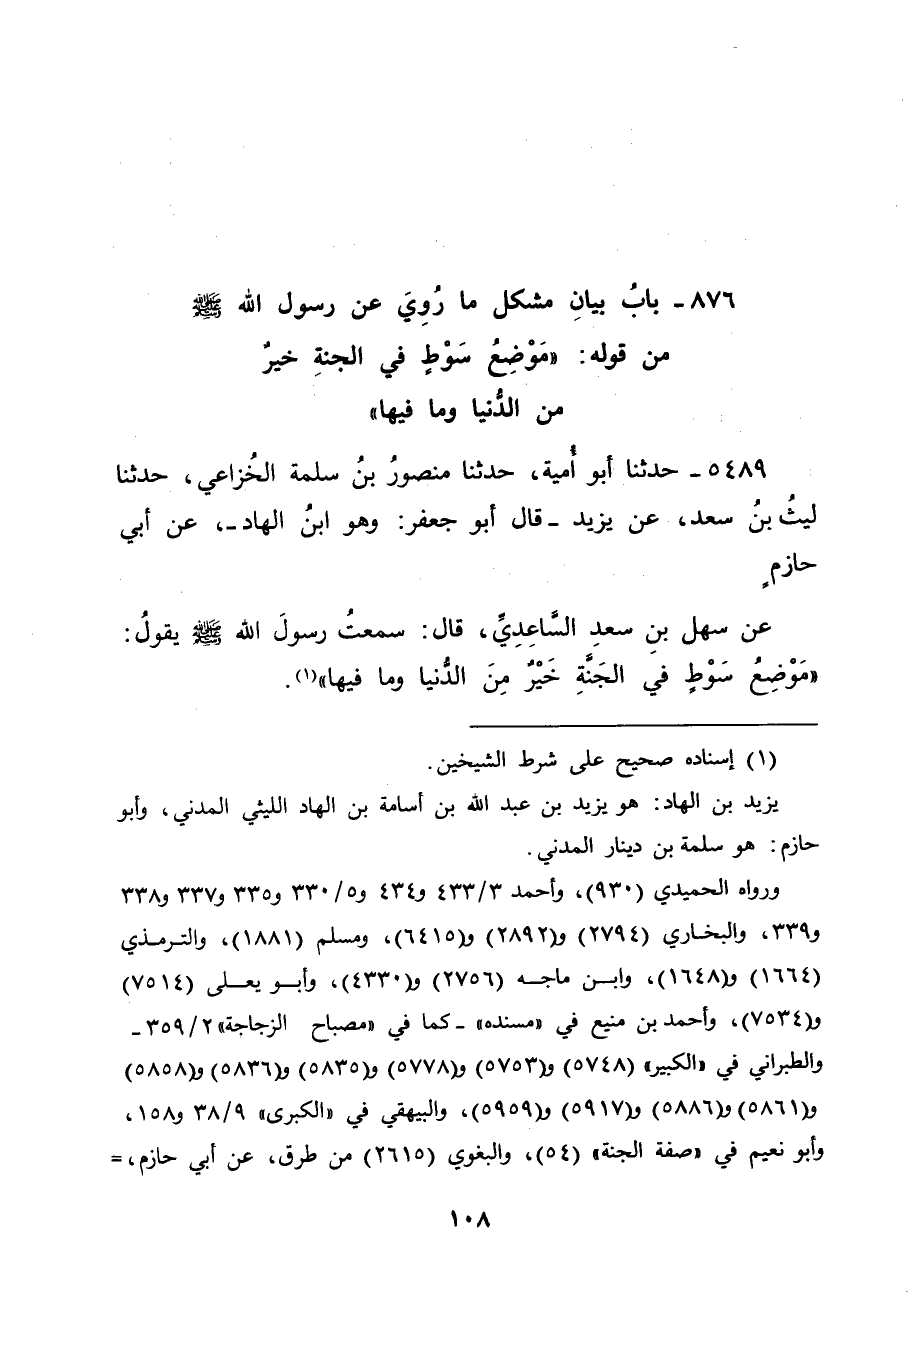 ٨٧٦ـ بابُ بيانِ مشكل ما رُوِيَ عن رسول الله ﷺ
من قوله: «مَوْضِعُ سَوْطٍ في الجنةِ خيرٌ
من الدُّنيا وما فيها»
٥٤٨٩ـ حدثنا أبو أُمية، حدثنا منصورُ بنُ سلمة الخُزاعي، حدثنا
ليثُ بنُ سعد، عن يزيد ـ قال أبو جعفر: وهو ابنُ الهاد ـ، عن أبي
حازمٍ
عن سهل بنِ سعدِ السَّاعِدِيِّ، قال: سمعتُ رسولَ الله ﷺ يقولُ:
«مَوْضِعُ سَوْطٍ في الجَنَّةِ خَيْرٌ مِنَ الدُّنيا وما فيها»(١).
(١) إسناده صحيح على شرط الشيخين.
يزيد بن الهاد: هو يزيد بن عبد الله بن أسامة بن الهاد الليثي المدني، وأبو
حازم: هو سلمة بن دينار المدني.
ورواه الحميدي (٩٣٠)، وأحمد ٤٣٣/٣ و٤٣٤ و٣٣٠/٥ و٣٣٥ و٣٣٧ و٣٣٨
و٣٣٩، والبخاري (٢٧٩٤) و(٢٨٩٢) و(٦٤١٥)، ومسلم (١٨٨١)، والترمذي
(١٦٦٤) و(١٦٤٨)، وابن ماجه (٢٧٥٦) و(٤٣٣٠)، وأبو يعلى (٧٥١٤)
و(٧٥٣٤)، وأحمد بن منيع في «مسنده» ـ كما في «مصباح الزجاجة» ٣٥٩/٢ ـ
والطبراني في «الكبير» (٥٧٤٨) و(٥٧٥٣) و(٥٧٧٨) و(٥٨٣٥) و(٥٨٣٦) و(٥٨٥٨)
و(٥٨٦١) و(٥٨٨٦) و(٥٩١٧) و(٥٩٥٩)، والبيهقي في «الكبرى» ٣٨/٩ و١٥٨،
وأبو نعيم في «صفة الجنة» (٥٤)، والبغوي (٢٦١٥) من طرق، عن أبي حازم، =
١٠٨